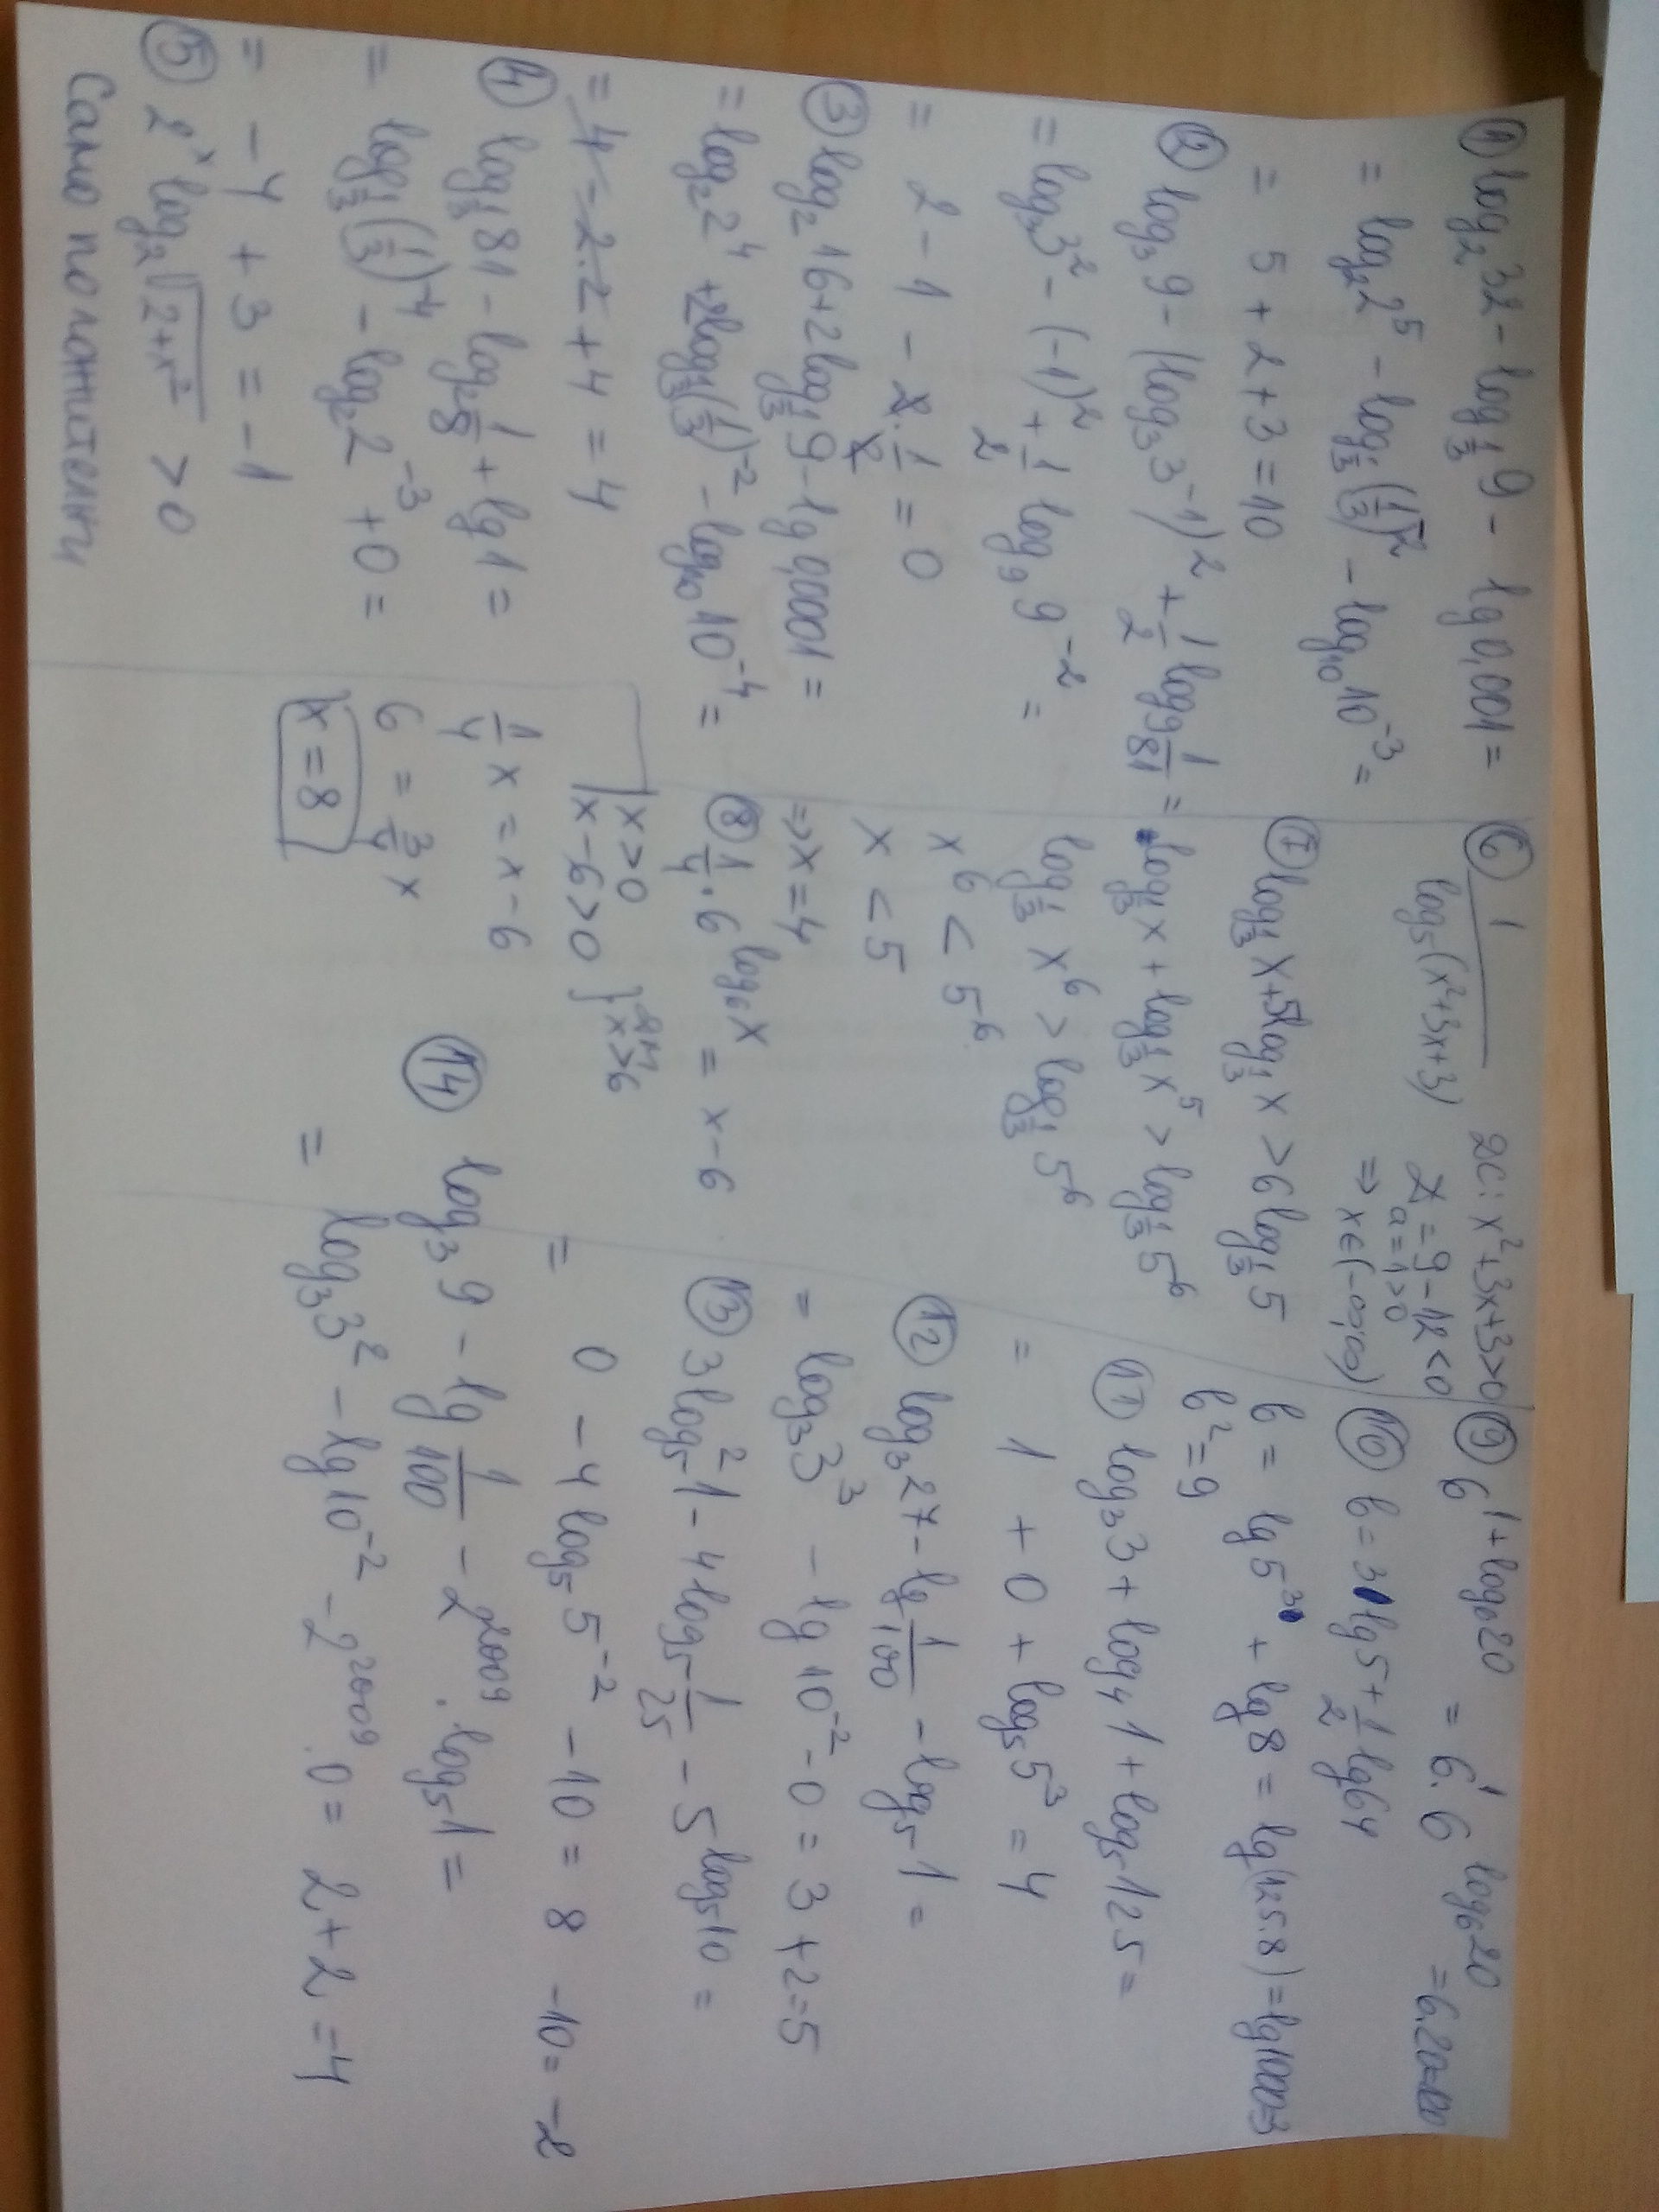 ① log₂32 - log_{1/3}9 - lg0,001 =
= log₂2⁵ - log_{1/3}(1/3)⁻² - log₁₀10⁻³ =
= 5 + 2 + 3 = 10
② log₃9 - (log₃3⁻¹)² + 1/2 log₉ 1/81 =
= log₃3² - (-1)² + 1/2 log₉9⁻² =
= 2 - 1 - 2·1/2 = 0
③ log₂16 + 2log_{1/3}9 - lg0,0001 =
= log₂2⁴ + 2log_{1/3}(1/3)⁻² - log₁₀10⁻⁴ =
= 4 - 2.2 + 4 = 4
④ log_{1/3}81 - log₂ 1/8 + lg1 =
= log_{1/3}(1/3)⁻⁴ - log₂2⁻³ + 0 =
= -4 + 3 = -1
⑤ 2ˣ log₂√(2+x²) > 0
Само положителни
⑥ 1/log₅(x²+3x+3)
ДС: x²+3x+3>0
D = 9 - 12 < 0
a = 1 > 0
⇒ x ∈ (-∞,∞)
⑦ log_{1/3}x + 5log_{1/3}x > 6log_{1/3}5
log_{1/3}x + log_{1/3}x⁵ > log_{1/3}5⁶
log_{1/3}x⁶ > log_{1/3}5⁶
x⁶ < 5⁶
x < 5
⇒ x = 4
⑧ 1/4 . 6^{log₆x} = x - 6
x > 0
x - 6 > 0 } x > 6
1/4 x = x - 6
6 = 3/4 x
x = 8
⑨ 6^{1+log₆20} = 6¹.6^{log₆20} = 6.20=120
⑩ b = 3lg5 + 1/2 lg64
b = lg5³ + lg8 = lg(125.8) = lg1000=3
b² = 9
⑪ log₃3 + log₄1 + log₅125 =
= 1 + 0 + log₅5³ = 4
⑫ log₃27 - lg 1/100 - log₅1 =
= log₃3³ - lg10⁻² - 0 = 3 + 2 = 5
⑬ 3log₅²1 - 4log₅ 1/25 - 5^{log₅10} =
= 0 - 4log₅5⁻² - 10 = 8 - 10 = -2
⑭ log₃9 - lg 1/100 - 2²⁰⁰⁹ . log₅1 =
= log₃3² - lg10⁻² - 2²⁰⁰⁹ . 0 = 2 + 2 = 4